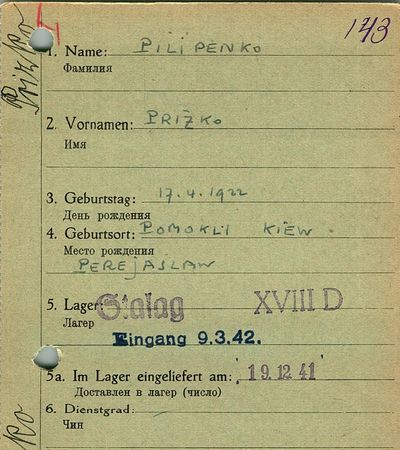 143
Prizko
1. Name: PILIPENKO
Фамилия
2. Vornamen: PRIZKO
Имя
3. Geburtstag: 17.4.1922
День рождения
4. Geburtsort: POMOKLI KIEW.
Место рождения
PEREJASLAW
5. Lager: Stalag XVIII D
Лагер
Eingang 9.3.42.
5a. Im Lager eingeliefert am: 19.12.41
Доставлен в лагер (число)
6. Dienstgrad:
Чин
ko